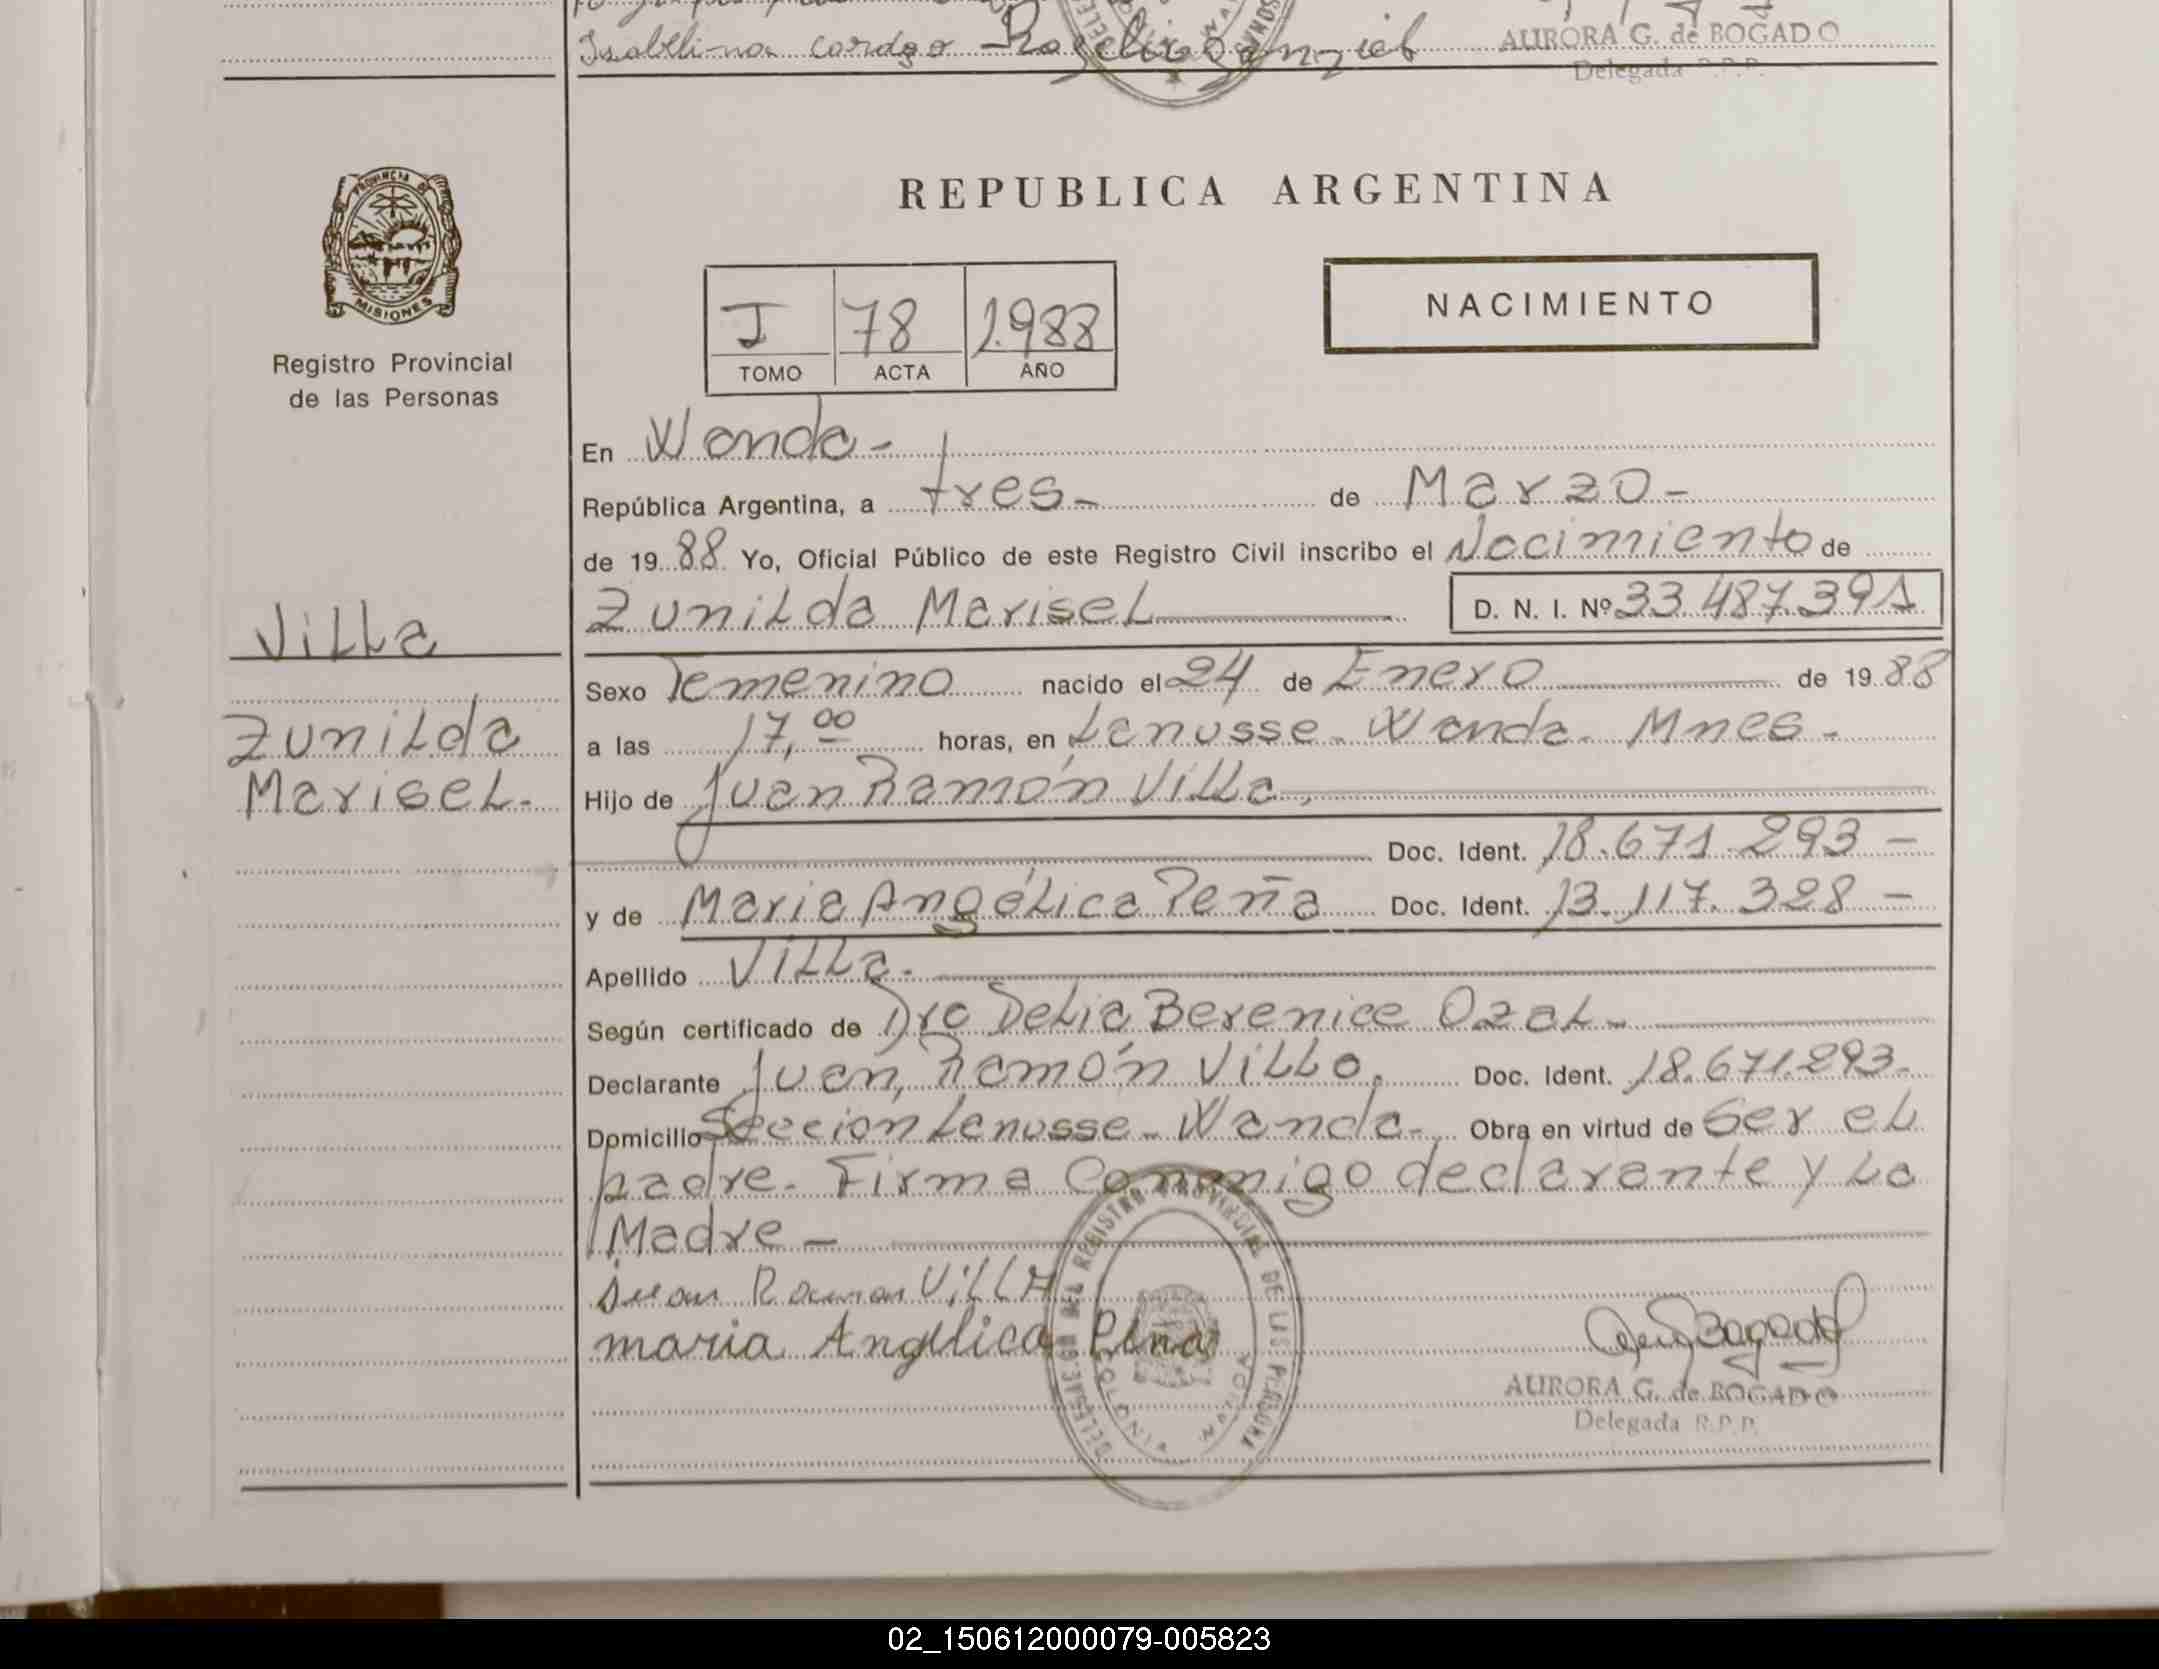 Isabelina Cardozo
AURORA G. de BOGADO
Delegada R.P.P.
PROVINCIA DE
MISIONES
Registro Provincial
de las Personas
REPUBLICA ARGENTINA
I 78 1.988
TOMO ACTA AÑO
NACIMIENTO
En Wanda-
República Argentina, a tres- de Marzo-
de 19 88 Yo, Oficial Público de este Registro Civil inscribo el Nacimiento de
Zunilda Marisel D. N. I. Nº 33.487.391
Villa
Zunilda
Marisel.-
Sexo Femenino nacido el 24 de Enero de 19 88
a las 17,00 horas, en Lanusse- Wanda- Mnes-
Hijo de Juan Ramón Villa,
Doc. Ident. 18.671.293-
y de Maria Angélica Peña Doc. Ident. 13.117.328-
Apellido Villa.-
Según certificado de Dra Delia Berenice Ozal-
Declarante Juan, Ramón Villa. Doc. Ident. 18.671.293.
Domicilio Seccion Lanusse- Wanda- Obra en virtud de Ser el
padre- Firma Conmigo declarante y La
Madre-
Juan Ramon ViLLA
maria Angelica Pena
DELEGACION DEL REGISTRO PROVINCIAL DE LAS PERSONAS
COLONIA WANDA
AURORA G. de BOGADO
Delegada R.P.P.
02_150612000079-005823